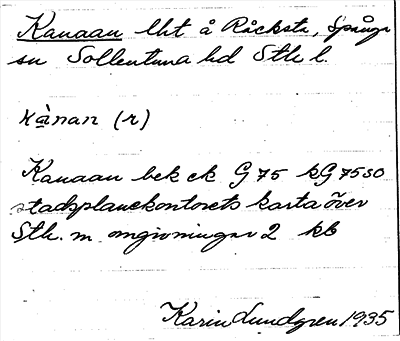 Kanaan lht å Råcksta, Spånga
sn Sollentuna hd Sthlm l.
kànan (r)
Kanaan bek ek G 75 kG 75 SO
stadsplanekontorets karta över
Sthlm. m. omgivningar 2 kb
Karin Lundgren 1935